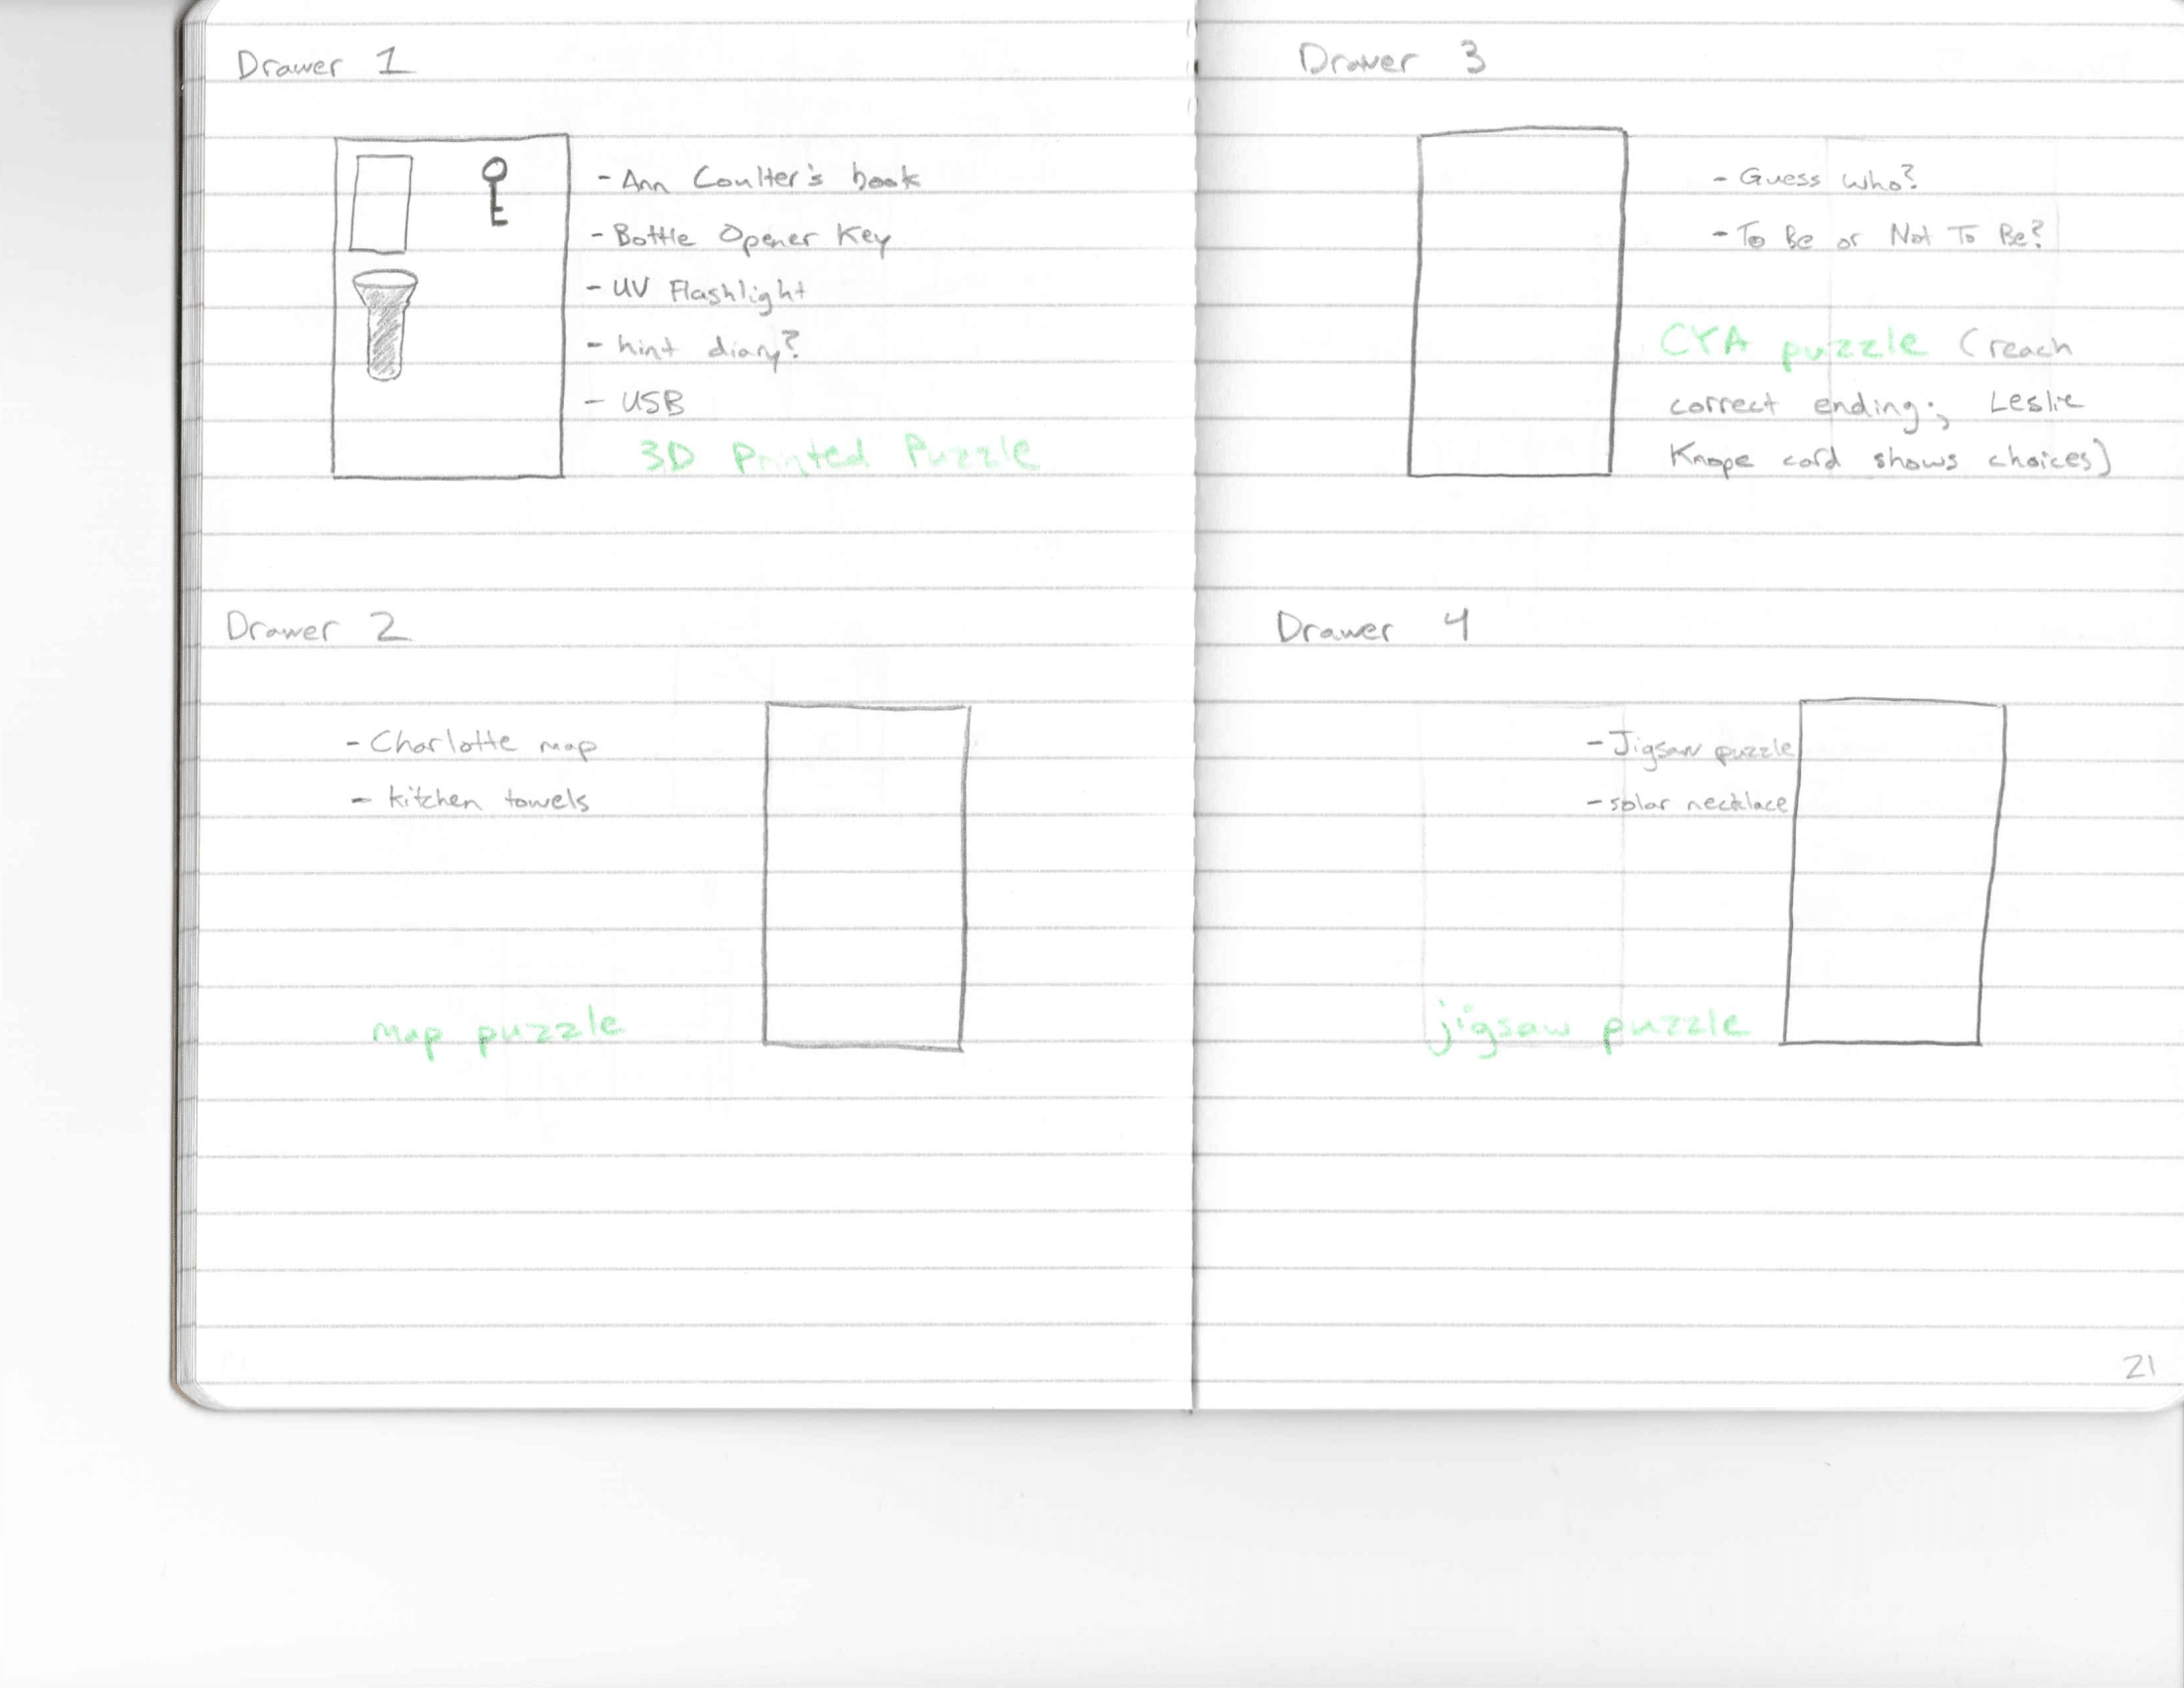 Drawer 1
- Ann Coulter's book
- Bottle Opener Key
- UV Flashlight
- hint diary?
- USB
3D Printed Puzzle
Drawer 2
- Charlotte map
- kitchen towels
map puzzle
Drawer 3
- Guess Who?
- To Be or Not To Be?
CYA puzzle (reach
correct ending; Leslie
Knope card shows choices)
Drawer 4
- Jigsaw puzzle
- solar necklace
jigsaw puzzle
21